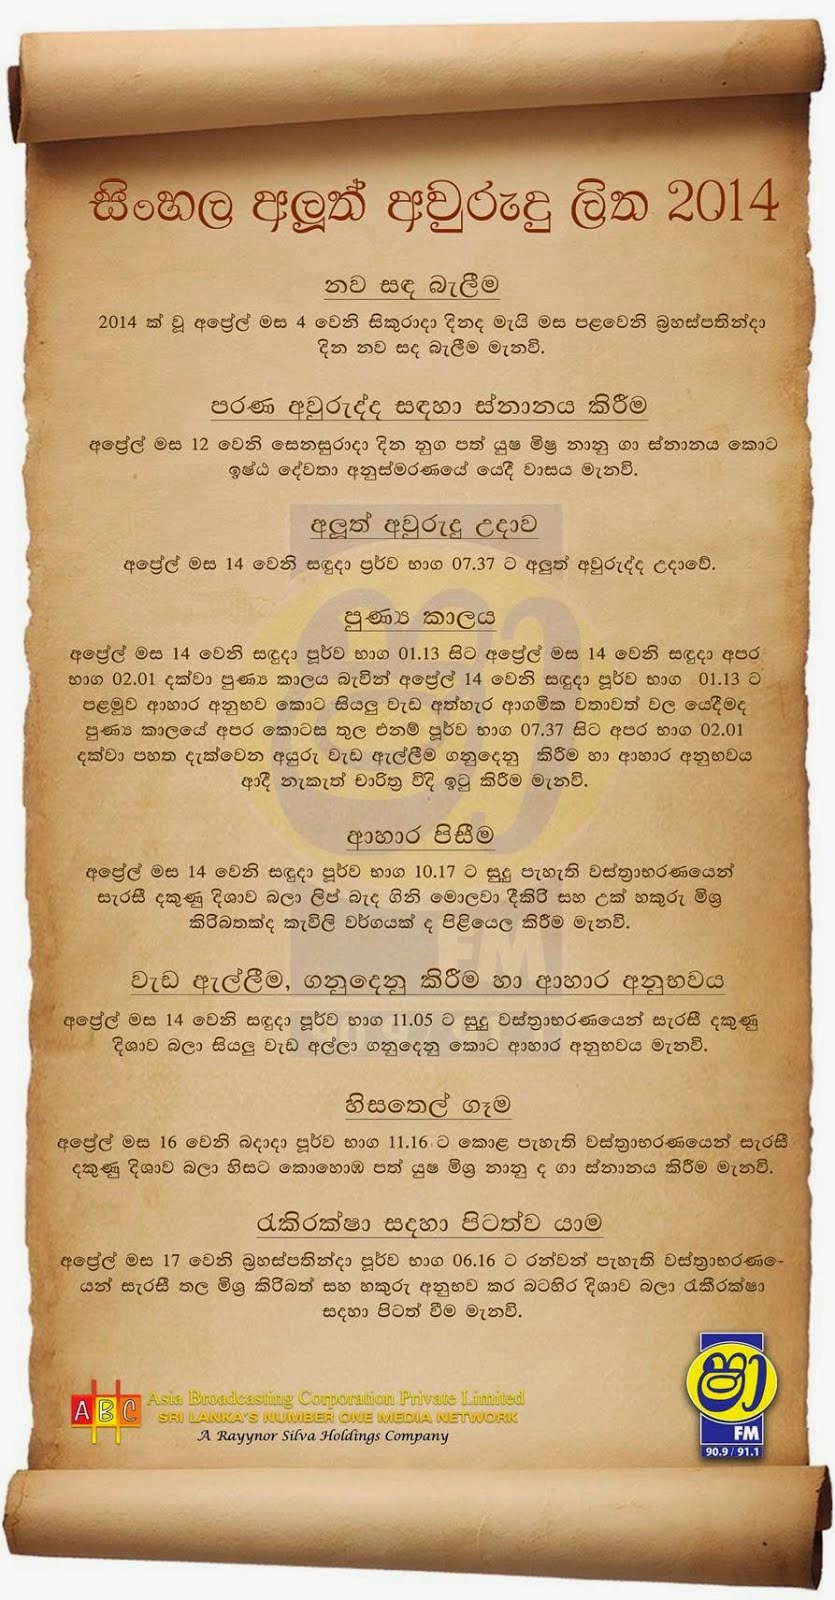 සිංහල අලූත් අවුරුදු ලිත 2014
නව සඳ බැලීම
2014 ක් වූ අප්‍රේල් මස 4 වෙනි සිකුරාදා දිනද මැයි මස පළවෙනි බ්‍රහස්පතින්දා
දින නව සද බැලීම මැනවි.
පරණ අවුරුද්ද සඳහා ස්නානය කිරීම
අප්‍රේල් මස 12 වෙනි සෙනසුරාදා දින නුග පත් යුෂ මිශ්‍ර නානු ගා ස්නානය කොට
ඉෂ්ඨ දේවතා අනුස්මරණයේ යෙදී වාසය මැනවි.
අලූත් අවුරුදු උදාව
අප්‍රේල් මස 14 වෙනි සඳුදා ප්‍රර්ව භාග 07.37 ට අලුත් අවුරුද්ද උදාවේ.
පුණ්‍ය කාලය
අප්‍රේල් මස 14 වෙනි සඳුදා පූර්ව භාග 01.13 සිට අප්‍රේල් මස 14 වෙනි සඳුදා අපර
භාග 02.01 දක්වා පුණ්‍ය කාලය බැවින් අප්‍රේල් 14 වෙනි සඳුදා පූර්ව භාග 01.13 ට
පළමුව ආහාර අනුභව කොට සියලු වැඩ අත්හැර ආගමික වතාවත් වල යෙදීමද
පුණ්‍ය කාලයේ අපර කොටස තුල එනම් පූර්ව භාග 07.37 සිට අපර භාග 02.01
දක්වා පහත දැක්වෙන අයුරු වැඩ ඇල්ලීම ගනුදෙනු කිරීම හා ආහාර අනුභවය
ආදී නැකැත් චාරිත්‍ර විදි ඉටු කිරීම මැනවි.
ආහාර පිසීම
අප්‍රේල් මස 14 වෙනි සඳුදා පූර්ව භාග 10.17 ට සුදු පැහැති වස්ත්‍රාභරණයෙන්
සැරසී දකුණු දිශාව බලා ලිප් බැද ගිනි මොලවා දීකිරි සහ උක් හකුරු මිශ්‍ර
කිරිබතක්ද කැවිලි වර්ගයක් ද පිළියෙල කිරීම මැනවි.
වැඩ ඇල්ලීම, ගනුදෙනු කිරීම හා ආහාර අනුභවය
අප්‍රේල් මස 14 වෙනි සඳුදා පූර්ව භාග 11.05 ට සුදු වස්ත්‍රාභරණයෙන් සැරසී දකුණු
දිශාව බලා සියලු වැඩ අල්ලා ගනුදෙනු කොට ආහාර අනුභවය මැනවි.
හිසතෙල් ගෑම
අප්‍රේල් මස 16 වෙනි බදාදා පූර්ව භාග 11.16 ට කොළ පැහැති වස්ත්‍රාභරණයෙන් සැරසී
දකුණු දිශාව බලා හිසට කොහොඹ පත් යුෂ මිශ්‍ර නානු ද ගා ස්නානය කිරීම මැනවි.
රැකිරක්ෂා සදහා පිටත්ව යාම
අප්‍රේල් මස 17 වෙනි බ්‍රහස්පතින්දා පූර්ව භාග 06.16 ට රන්වන් පැහැති වස්ත්‍රාභරණ-
යෙන් සැරසී තල මිශ්‍ර කිරිබත් සහ හකුරු අනුභව කර බටහිර දිශාව බලා රැකීරක්ෂා
සදහා පිටත් වීම මැනවි.
ABC Asia Broadcasting Corporation Private Limited
SRI LANKA'S NUMBER ONE MEDIA NETWORK
A Rayynor Silva Holdings Company
ෂා
FM
90.9 / 91.1